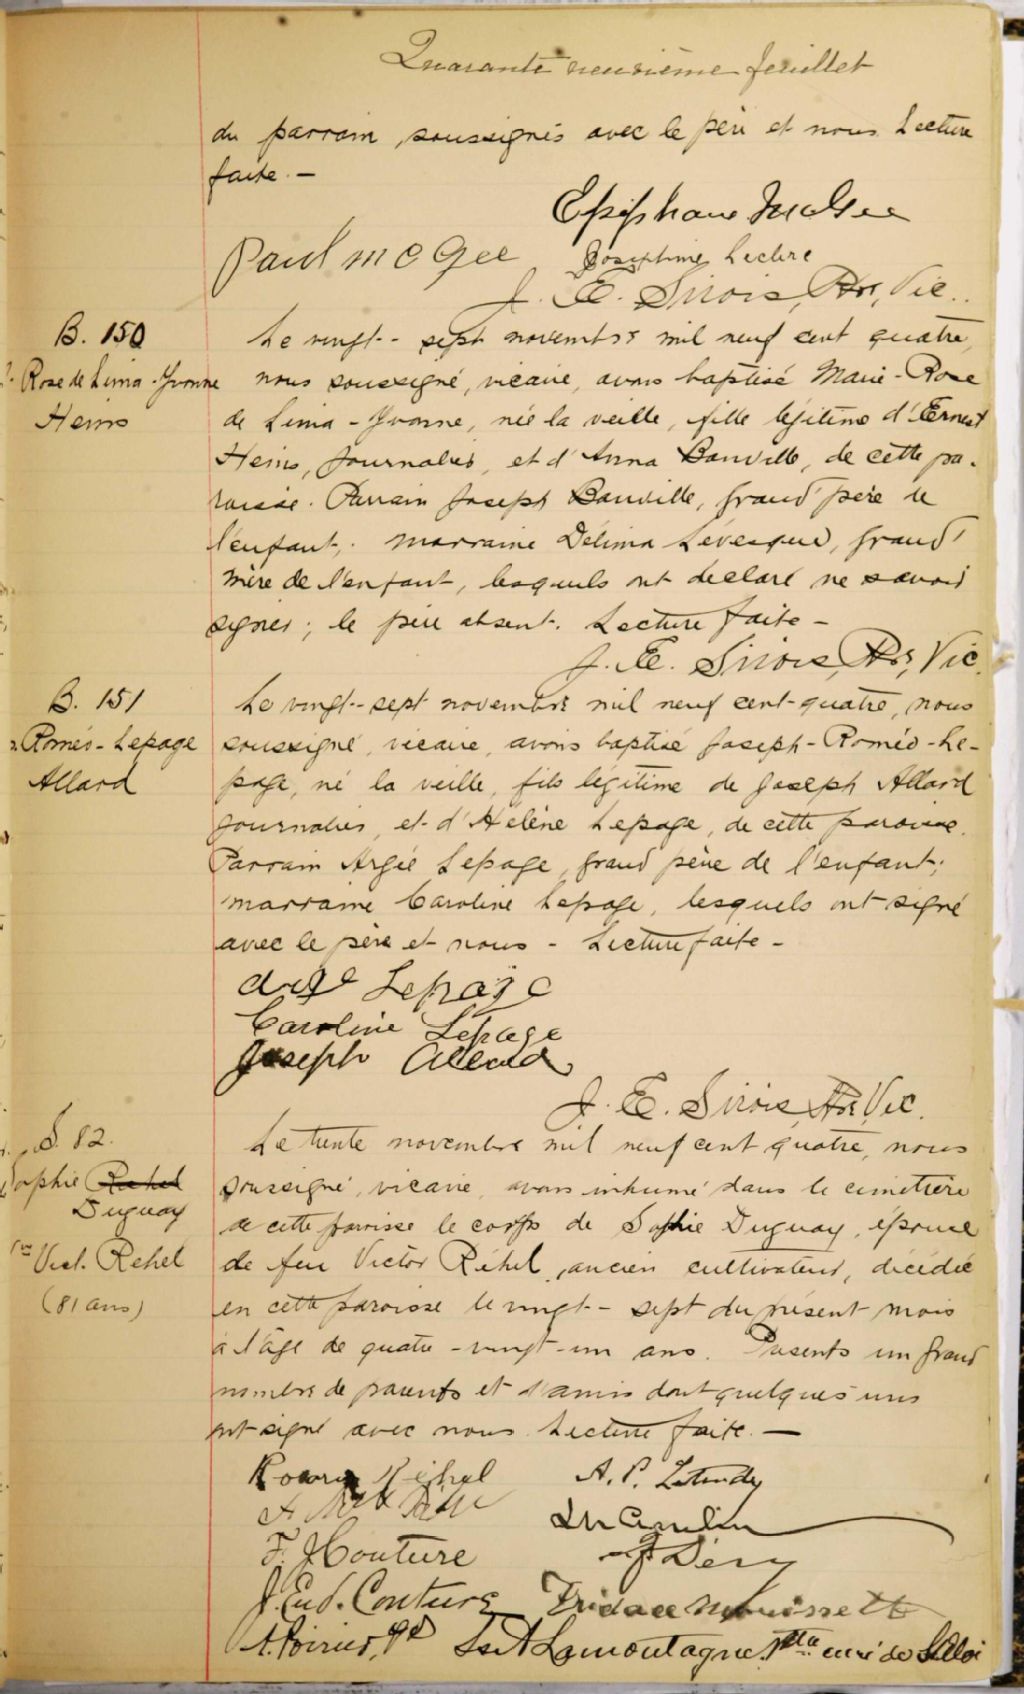 Quarante neuvième feuillet
du parrain, soussignés avec le père et nous. Lecture
faite. —
Epiphane McGee
Paul McGee Josephine Leclerc
J. E. Sirois, Ptr, Vic.
B. 150
Rose de Lima-Yvonne
Heins
Le vingt-sept novembre mil neuf cent quatre,
nous soussigné, vicaire, avons baptisé Marie-Rose
de Lima-Yvonne, née la veille, fille légitime d'Ernest
Heins, journalier, et d'Anna Banville, de cette pa-
roisse. Parrain Joseph Banville, grand'père de
l'enfant; marraine Délima Lévesque, grand'
mère de l'enfant, lesquels ont déclaré ne savoir
signer; le père absent. Lecture faite —
J. E. Sirois, Ptr, Vic.
B. 151
Roméo-Lepage
Allard
Le vingt-sept novembre mil neuf cent-quatre, nous
soussigné, vicaire, avons baptisé Joseph-Roméo-Le-
page, né la veille, fils légitime de Joseph Allard
journalier, et d'Hélène Lepage, de cette paroisse.
Parrain Argée Lepage, grand père de l'enfant;
marraine Caroline Lepage, lesquels ont signé
avec le père et nous - Lecture faite -
Lepage
Caroline Lepage
Joseph Allard
J. E. Sirois, Ptr, Vic.
S. 82.
Sophie Rehel
Duguay
Vict. Rehel
(81 ans)
Le trente novembre mil neuf cent quatre, nous
soussigné, vicaire, avons inhumé dans le cimetière
de cette paroisse le corps de Sophie Duguay, épouse
de feu Victor Réhel, ancien cultivateur, décédée
en cette paroisse le vingt-sept du présent mois
à l'âge de quatre-vingt-un ans. Présents un grand
nombre de parents et d'amis dont quelques uns
ont signé avec nous. Lecture faite. —
Réhel A. P.
F. J. Couture Déry
J. Eud. Couture
A. Poirier, Lamontagne, Ptre curé de